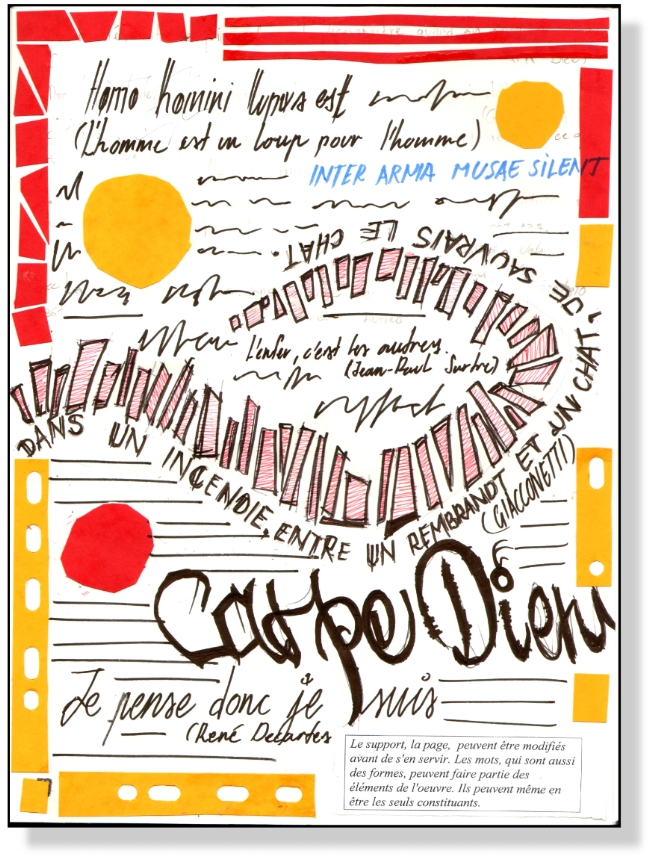 Homo homini lupus est
(L'homme est un loup pour l'homme)
INTER ARMA MUSAE SILENT
DANS UN INCENDIE, ENTRE UN REMBRANDT ET UN CHAT, JE SAUVRAIS LE CHAT.
(GIACCONETTI)
L'enfer, c'est les autres.
(Jean-Paul Sartre)
Carpe Diem
Je pense donc je suis
(René Descartes
Le support, la page, peuvent être modifiés
avant de s'en servir. Les mots, qui sont aussi
des formes, peuvent faire partie des
éléments de l'oeuvre. Ils peuvent même en
être les seuls constituants.